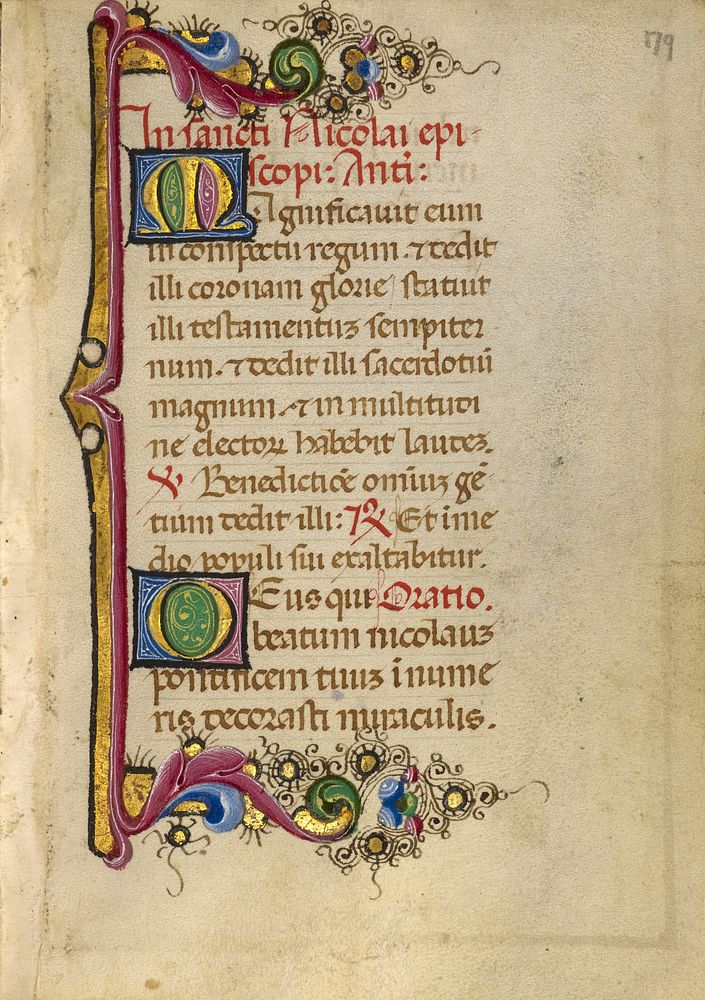 179
In sancti Nicolai epi-
scopi: Anti:
MAgnificavit eum
in conspectu regum. ⁊ dedit
illi coronam glorie statuit
illi testamentuꝫ sempiter
num. ⁊ dedit illi sacerdotiū
magnum. ⁊ in multitudi
ne electoꝝ habebit laudeꝫ.
℣ Benedictiōē omniuꝫ gē
tium dedit illi: ℟ Et ī me
dio populi sui exaltabitur.
DEus qui Oratio.
beatum nicolauꝫ
pontificem tuuꝫ īnume
ris decorasti miraculis.